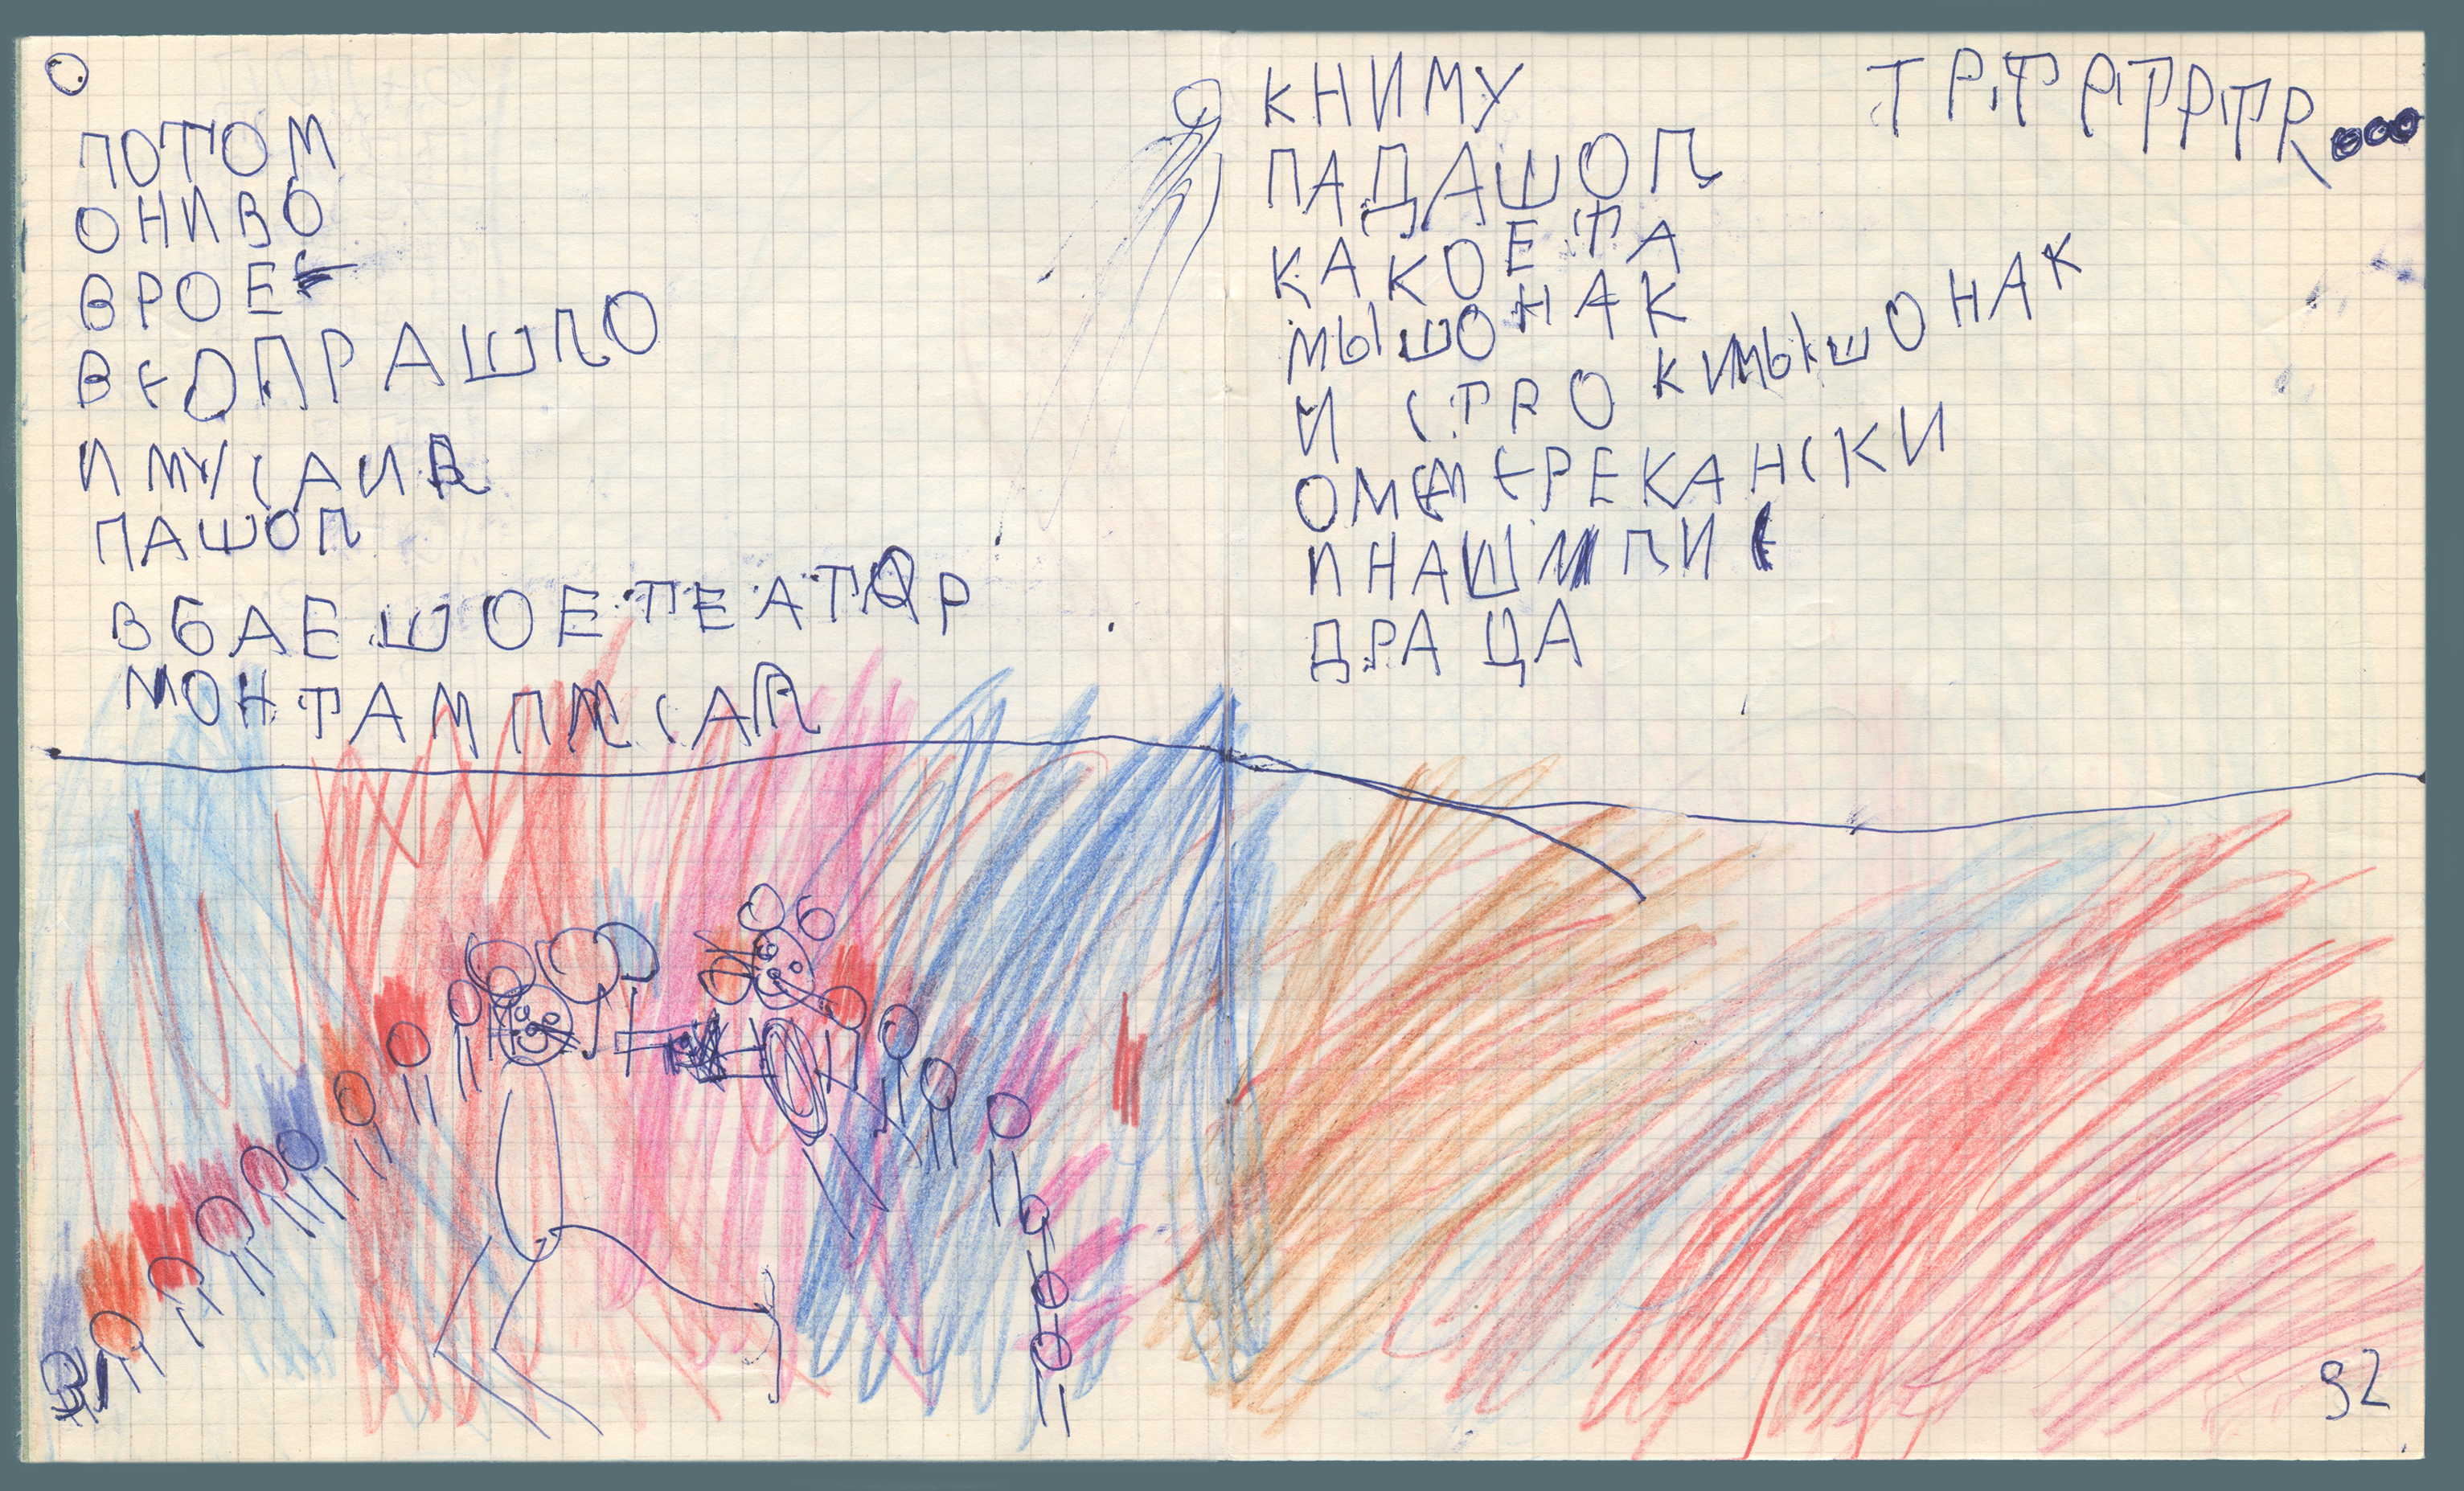 ПОТОМ
ОНИВО
ВРОЕ
ВСОПРАШЛО
ИМУСАИЯ
ПАШОЛ
ВБАЕШОЕТЕАТОР
МОНТАМ
КНИМУ
ПАДАШОЛ
КАКОЕТА
МЫШОНАК
И СТРО КИМЫШОНАК
ОМЕРЕКАНСКИ
ИНАШ ЛИ
ДРАЦА
ТРТРТРТR...
92